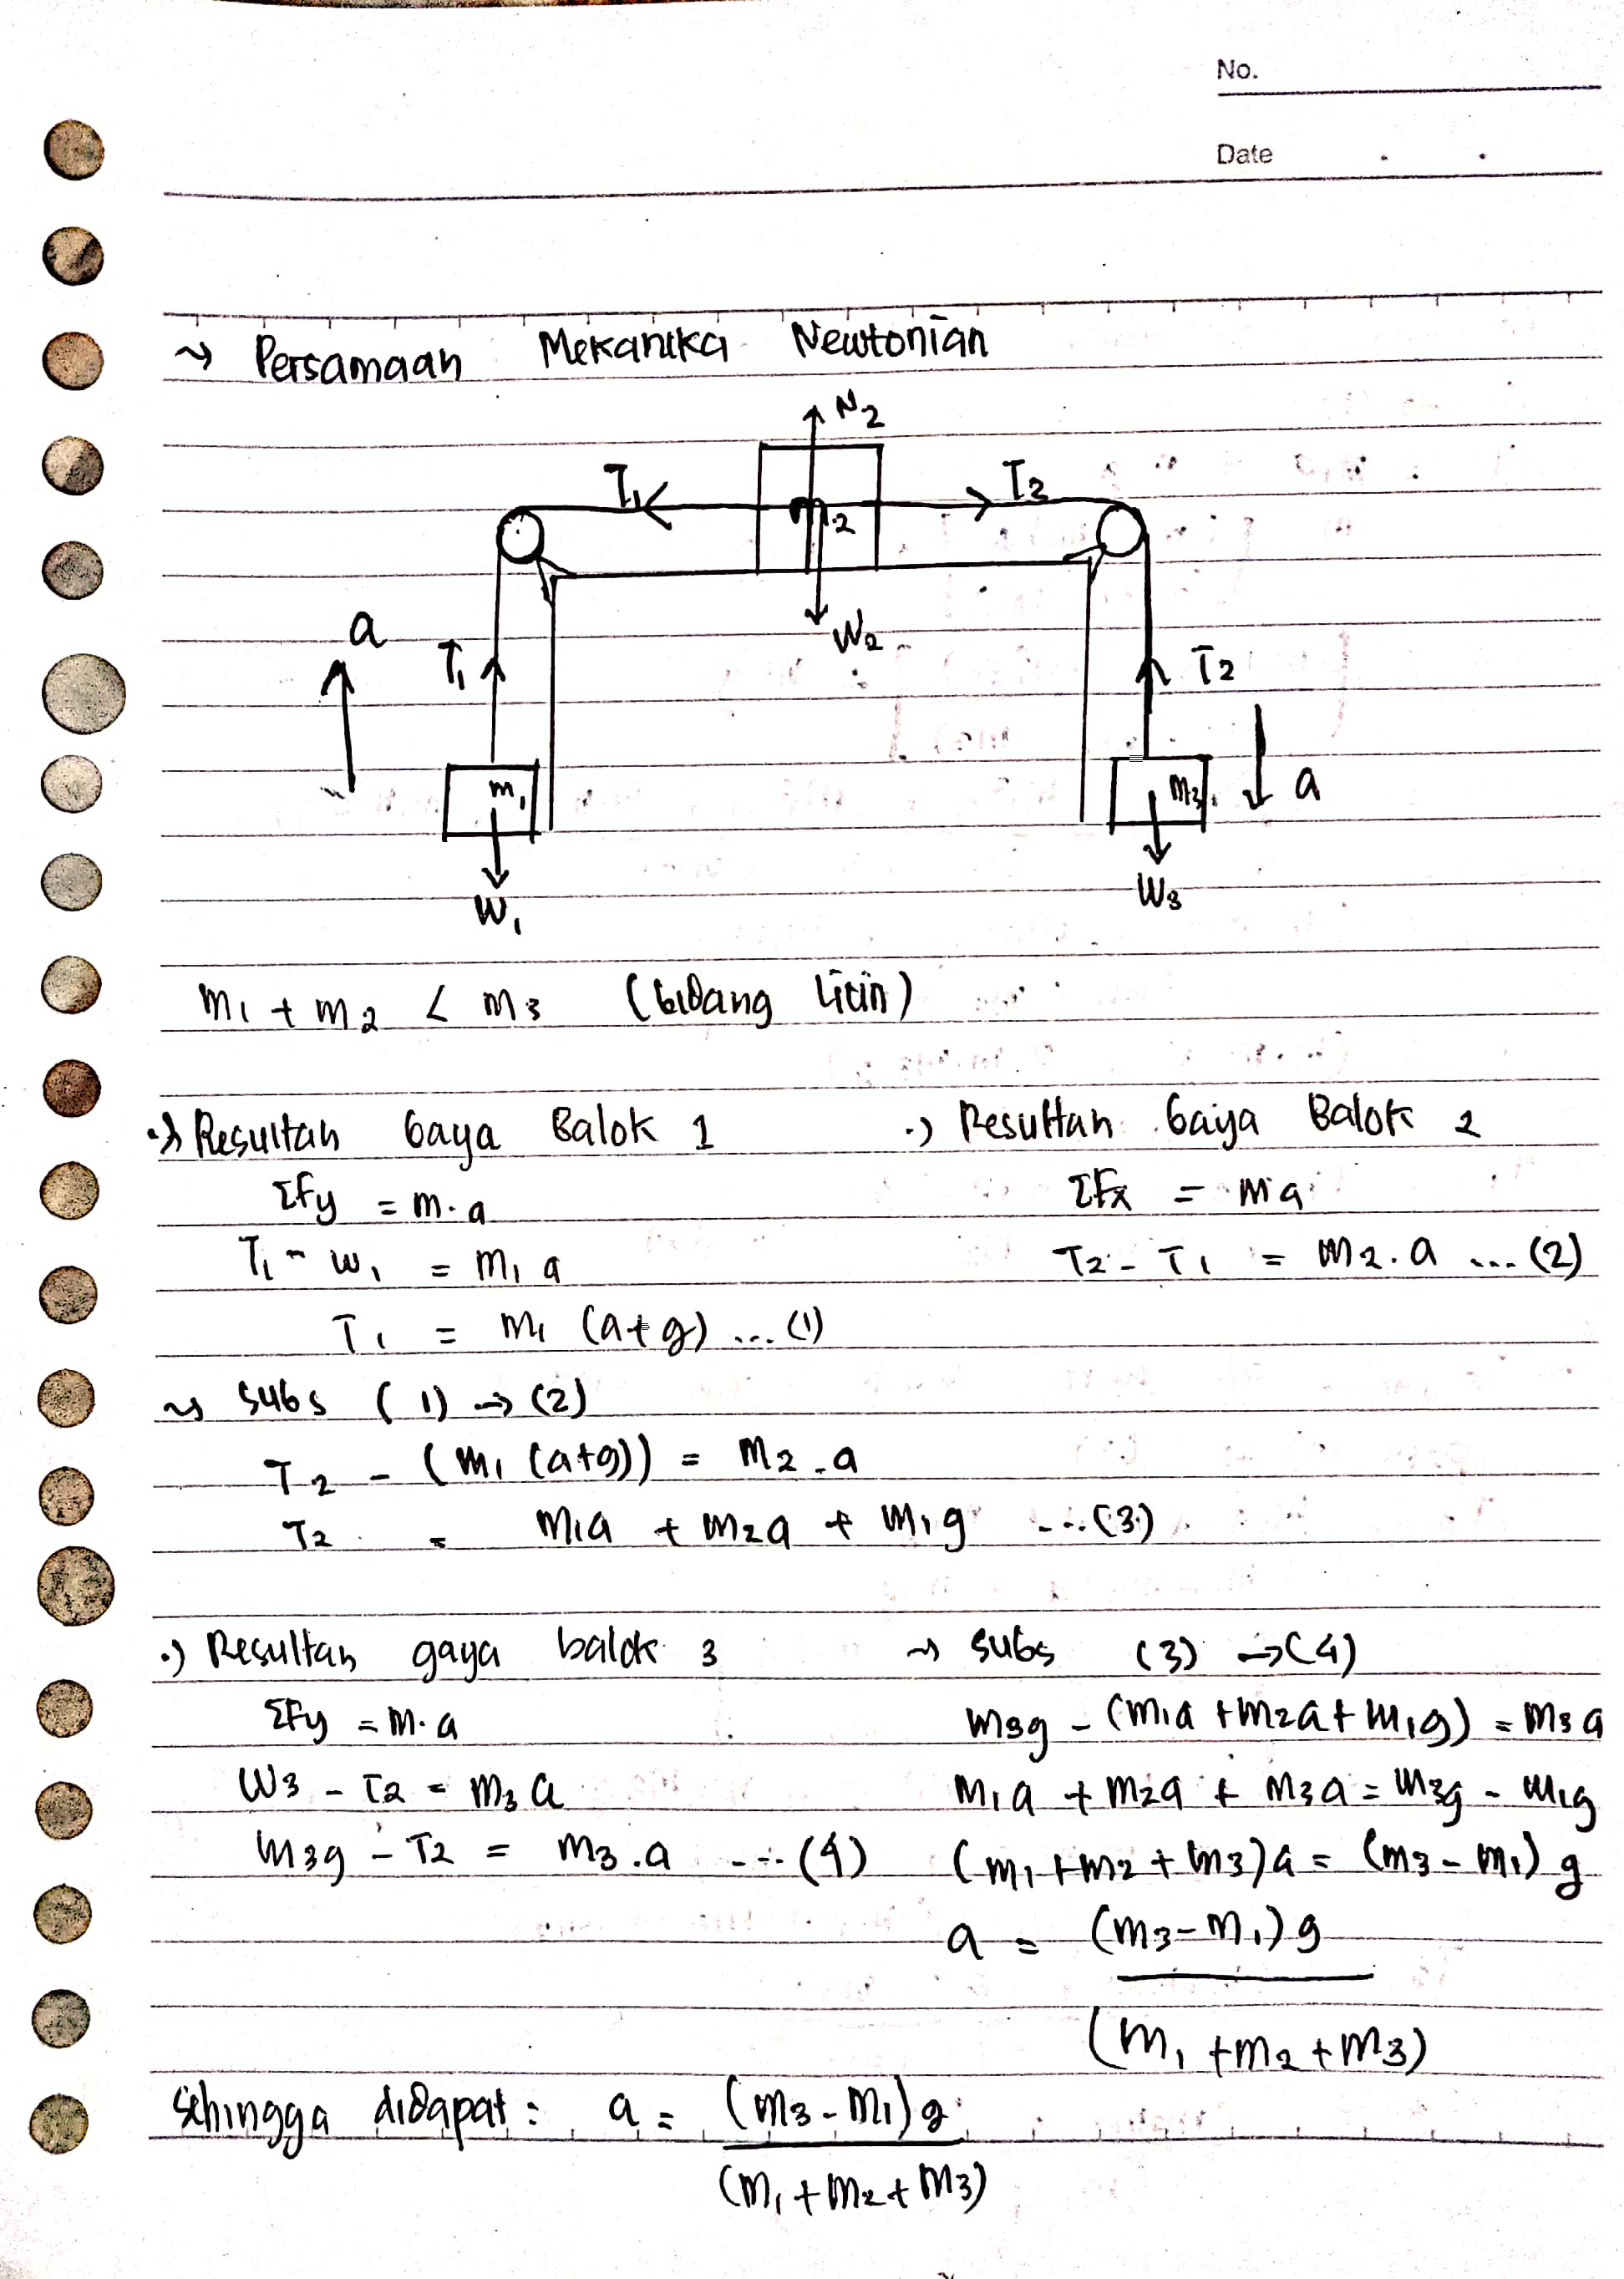 No.
Date
~> Persamaan Mekanika Newtonian
N2
T1 T2
m2
W2
a T1 T2
m1 m3 a
W1 W3
m1 + m2 < m3 (bidang licin)
•) Resultan Gaya Balok 1
ΣFy = m.a
T1 - w1 = m1 a
T1 = m1 (a+g) ... (1)
•) Resultan Gaya Balok 2
ΣFx = m a
T2 - T1 = m2.a ... (2)
~> Subs (1) -> (2)
T2 - (m1 (a+g)) = m2.a
T2 = m1a + m2a + m1g ... (3)
•) Resultan gaya balok 3
ΣFy = m.a
W3 - T2 = m3 a
m3g - T2 = m3.a ... (4)
~> subs (3) -> (4)
m3g - (m1a + m2a + m1g) = m3 a
m1a + m2a + m3a = m3g - m1g
(m1 + m2 + m3)a = (m3 - m1) g
a = (m3-m1) g
(m1 + m2 + m3)
Sehingga didapat : a = (m3 - m1) g
(m1 + m2 + m3)